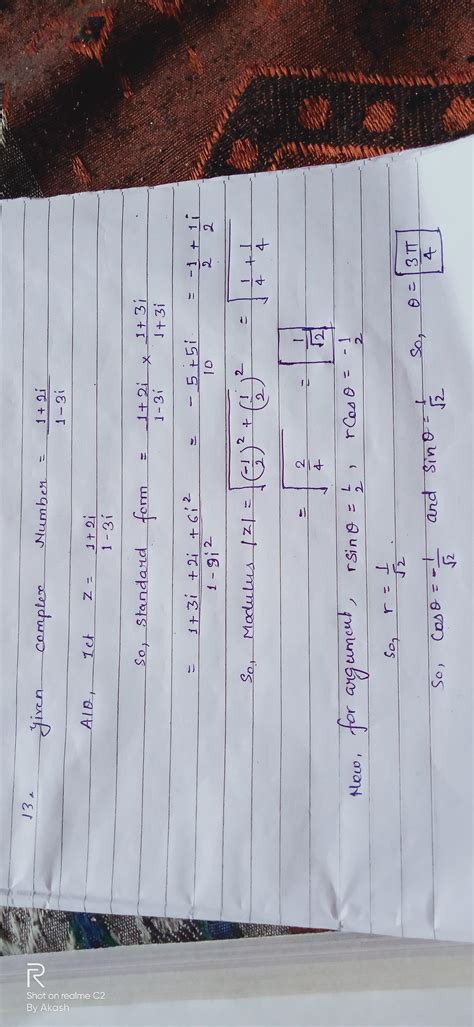 13.
Given complex Number = 1+2i / 1-3i
A/Q, let z = 1+2i / 1-3i
So, standard form = 1+2i / 1-3i × 1+3i / 1+3i
= 1+3i+2i+6i² / 1-9i² = -5+5i / 10 = -1/2 + 1i/2
So, Modulus |Z| = √(-1/2)² + (1/2)² = √1/4 + 1/4
= √2/4 = 1/√2
Now, for argument, rsinθ = 1/2, rcosθ = -1/2
So, r = 1/√2
So, cosθ = -1/√2 and sinθ = 1/√2 So, θ = 3π/4
R
Shot on realme C2
By Akash